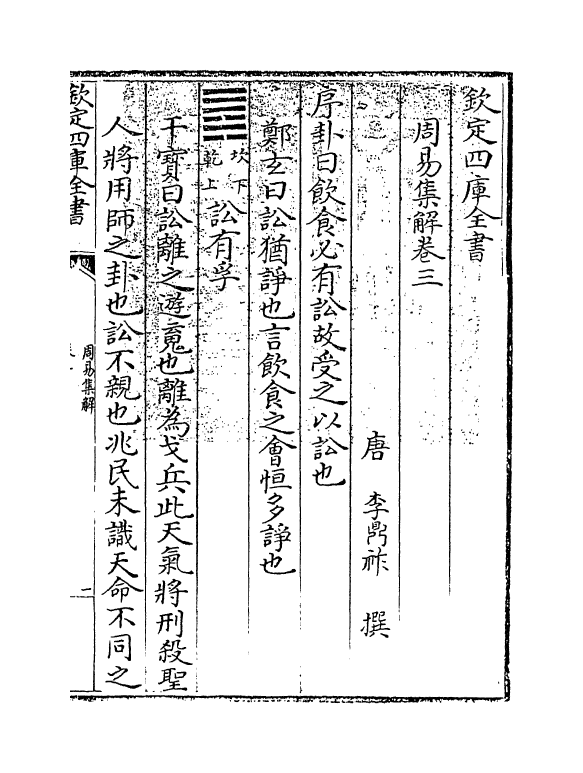 欽定四庫全書
周易集解卷三
唐 李鼎祚 撰
序卦曰飲食必有訟故受之以訟也
鄭玄曰訟猶諍也言飲食之會恒多諍也
䷅
坎下
乾上
訟有孚
干寶曰訟離之遊䰟也離為戈兵此天氣將刑殺聖
人將用師之卦也訟不親也兆民未識天命不同之
欽定四庫全書
周易集解